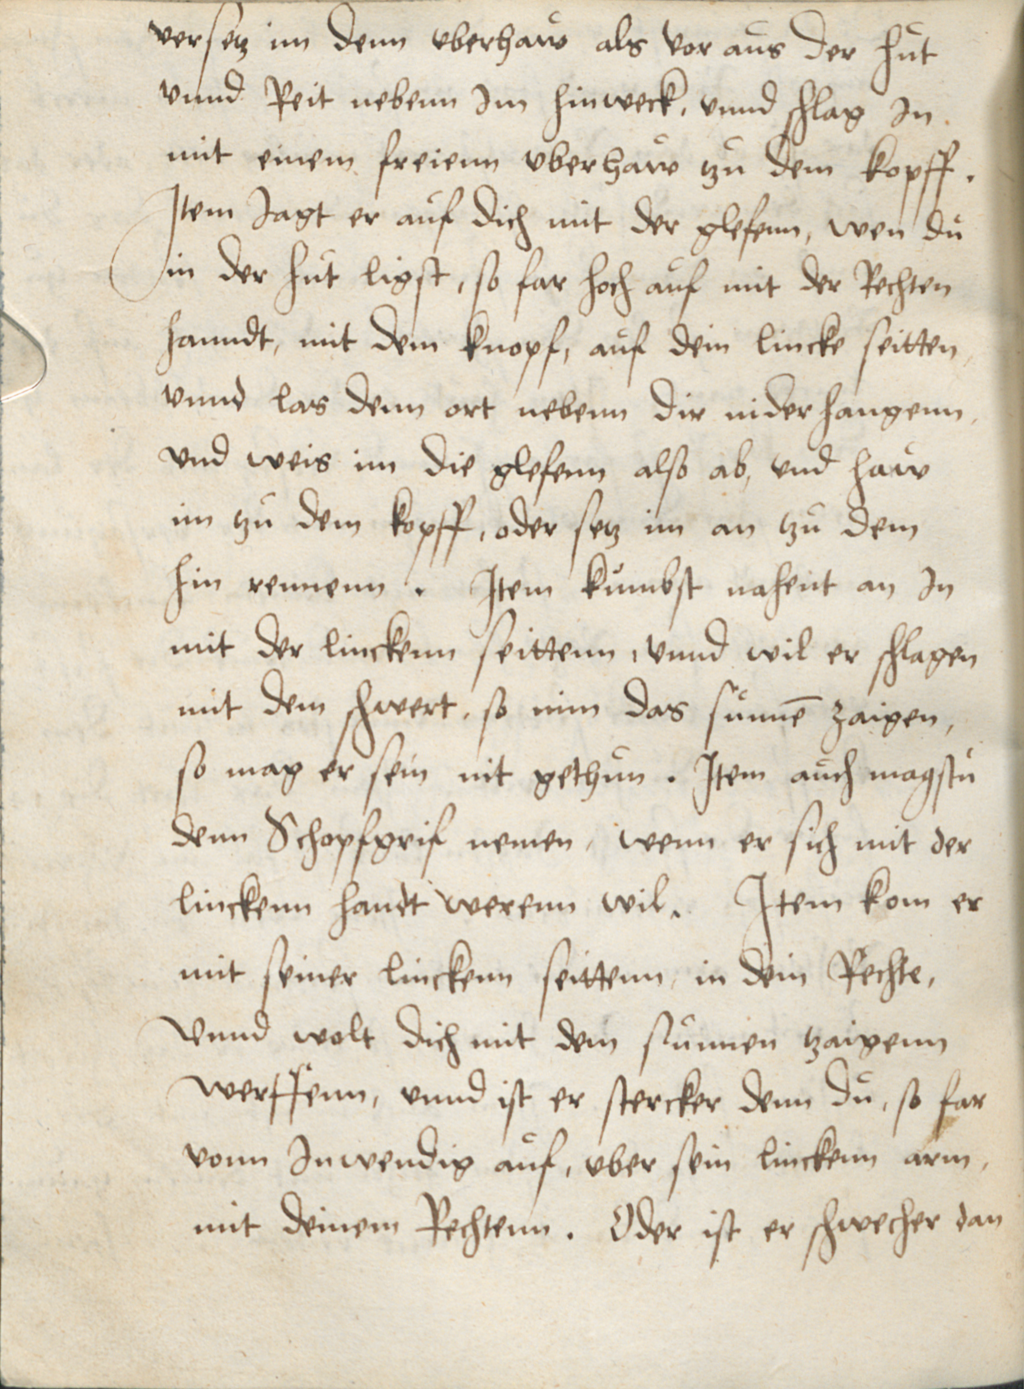 versetz im denn vberhaw als vor aus der hut
vnnd Reit nebenn Im hinweck, vnnd schlag In
mit einem freienn vberhaw tzu dem kopff.
Item Jagt er auf dich mit der glefenn, wen du
in der hut ligst, so far hoch auf mit der Rechten
hanndt, mit dem knopf, auf dein lincke seitten,
vnnd las denn ort nebenn dir nider hangenn,
vnd weis im die glefenn also ab, vnd haw
im tzu dem kopff, oder setz im an tzu dem
hin rennenn. Item kumbst nahent an In
mit der linckenn seittenn, vnnd wil er schlagen
mit dem schwert, so nim das sunnē zaigen,
so mag er sein nit gethun. Item auch magstu
denn Schopfgrif nemen, wenn er sich mit der
linckenn handt werenn wil. Item kom er
mit seiner linckenn seittenn, in dein Rechte,
Vnnd wolt dich mit dem sunnen tzaigenn
werffenn, vnnd ist er stercker denn du, so far
vonn Inwendig auf, vber sein linckenn arm,
mit deinem Rechtenn. Oder ist er schwecher dan